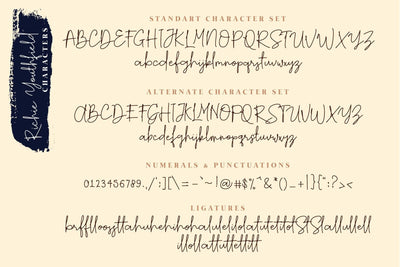 Richie Youthfield
CHARACTERS
STANDART CHARACTER SET
ABCDEFGHIJKLMNOPQRSTUVWXYZ
abcdefghijklmnopqrstuvwxyz
ALTERNATE CHARACTER SET
ABCDEFGHIJKLMNOPQRSTUVWXYZ
abcdefghijklmnopqrstuvwxyz
NUMERALS & PUNCTUATIONS
0123456789.,/';[\=-`~!@#$%^&*()_+|]{":?><
LIGATURES